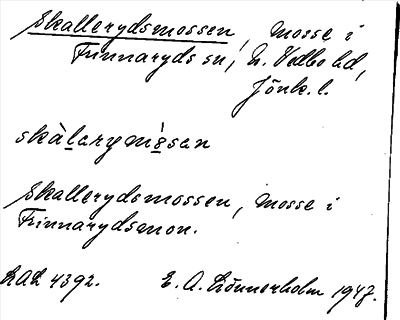 Skallerydsmossen, mosse i
Finnaryds sn, N. Vedbo hd,
Jönk. l.
skàlarymòsan
Skallerydsmossen, mosse i
Finnarydsmon.
4392. E. A. Lönnerholm 1947.